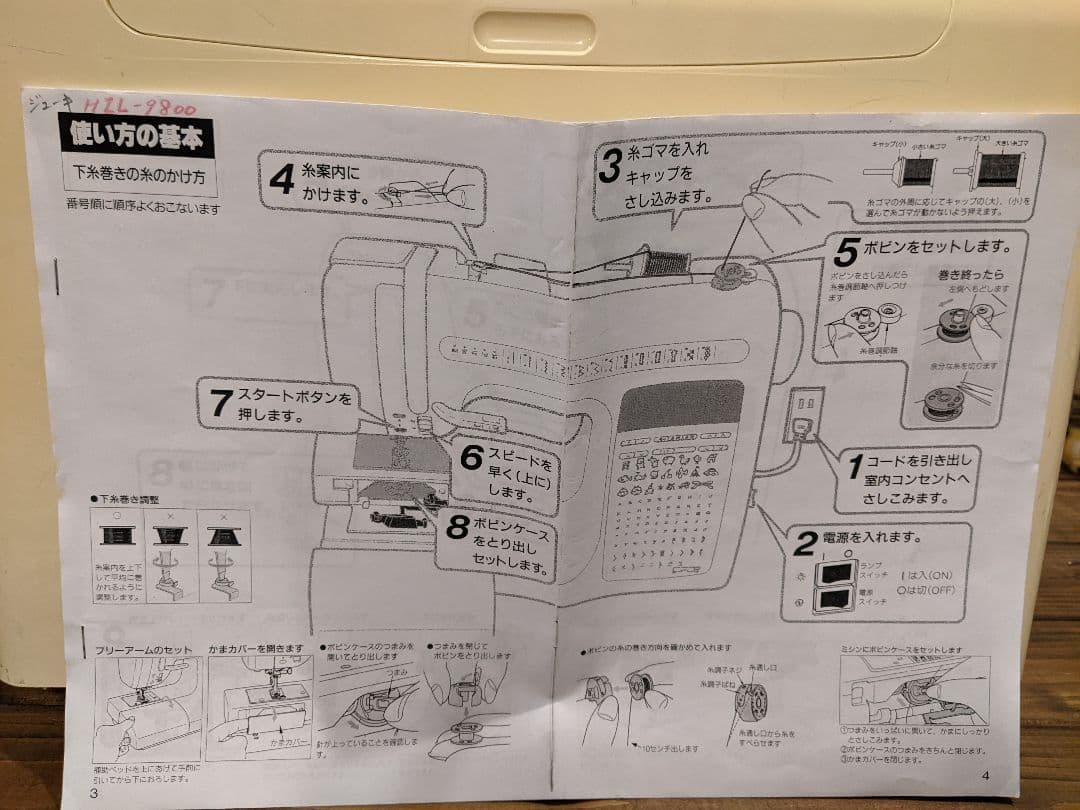 ジューキ HZL-9800
使い方の基本
下糸巻きの糸のかけ方
番号順に順序よくおこないます
4 糸案内に
かけます。
3 糸ゴマを入れ
キャップを
さし込みます。
キャップ(小) 小さい糸ゴマ
キャップ(大) 大きい糸ゴマ
糸ゴマの外周に応じてキャップの(大)、(小)を
選んで糸ゴマが動かないよう押えます。
5 ボビンをセットします。
ボビンをさし込んだら
糸巻調節軸へ押しつけ
ます
糸巻調節軸
巻き終ったら
左側へもどします
余分な糸を切ります
7 スタートボタンを
押します。
6 スピードを
早く(上に)
します。
8 ボビンケース
をとり出し
セットします。
1 コードを引き出し
室内コンセントへ
さしこみます。
2 電源を入れます。
ランプ
スイッチ
電源
スイッチ
Iは入(ON)
○は切(OFF)
●下糸巻き調整
○ × ×
糸案内を上下
して平均に巻
かれるように
調整します。
フリーアームのセット
補助ベッドを上にあげて手前に
引いてから下におろします。
かまカバーを開きます
かまカバー
●ボビンケースのつまみを
開いてとり出します
つまみ
針が上っていることを確認しま
す。
●つまみを閉じて
ボビンをとり出します
●ボビンの糸の巻き方向を確かめて入れます
10センチ出します
糸調子ネジ 糸通し口
糸調子ばね
糸通し口から糸を
すべらせます
ミシンにボビンケースをセットします
①つまみをいっぱいに開いて、かまにしっかり
とさしこみます。
②ボビンケースのつまみをきちんと閉じます。
③かまカバーを閉じます。
3
4